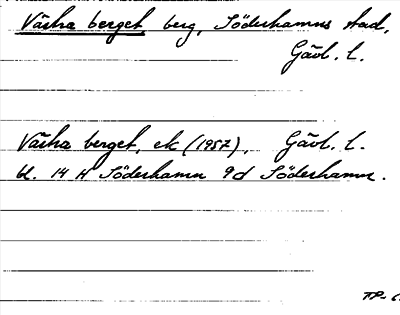 Västra berget, berg, Söderhamns stad,
Gävl. l.
Västra berget, ek (1957), Gävl. l.
bl. 14 H Söderhamn 9d Söderhamn.